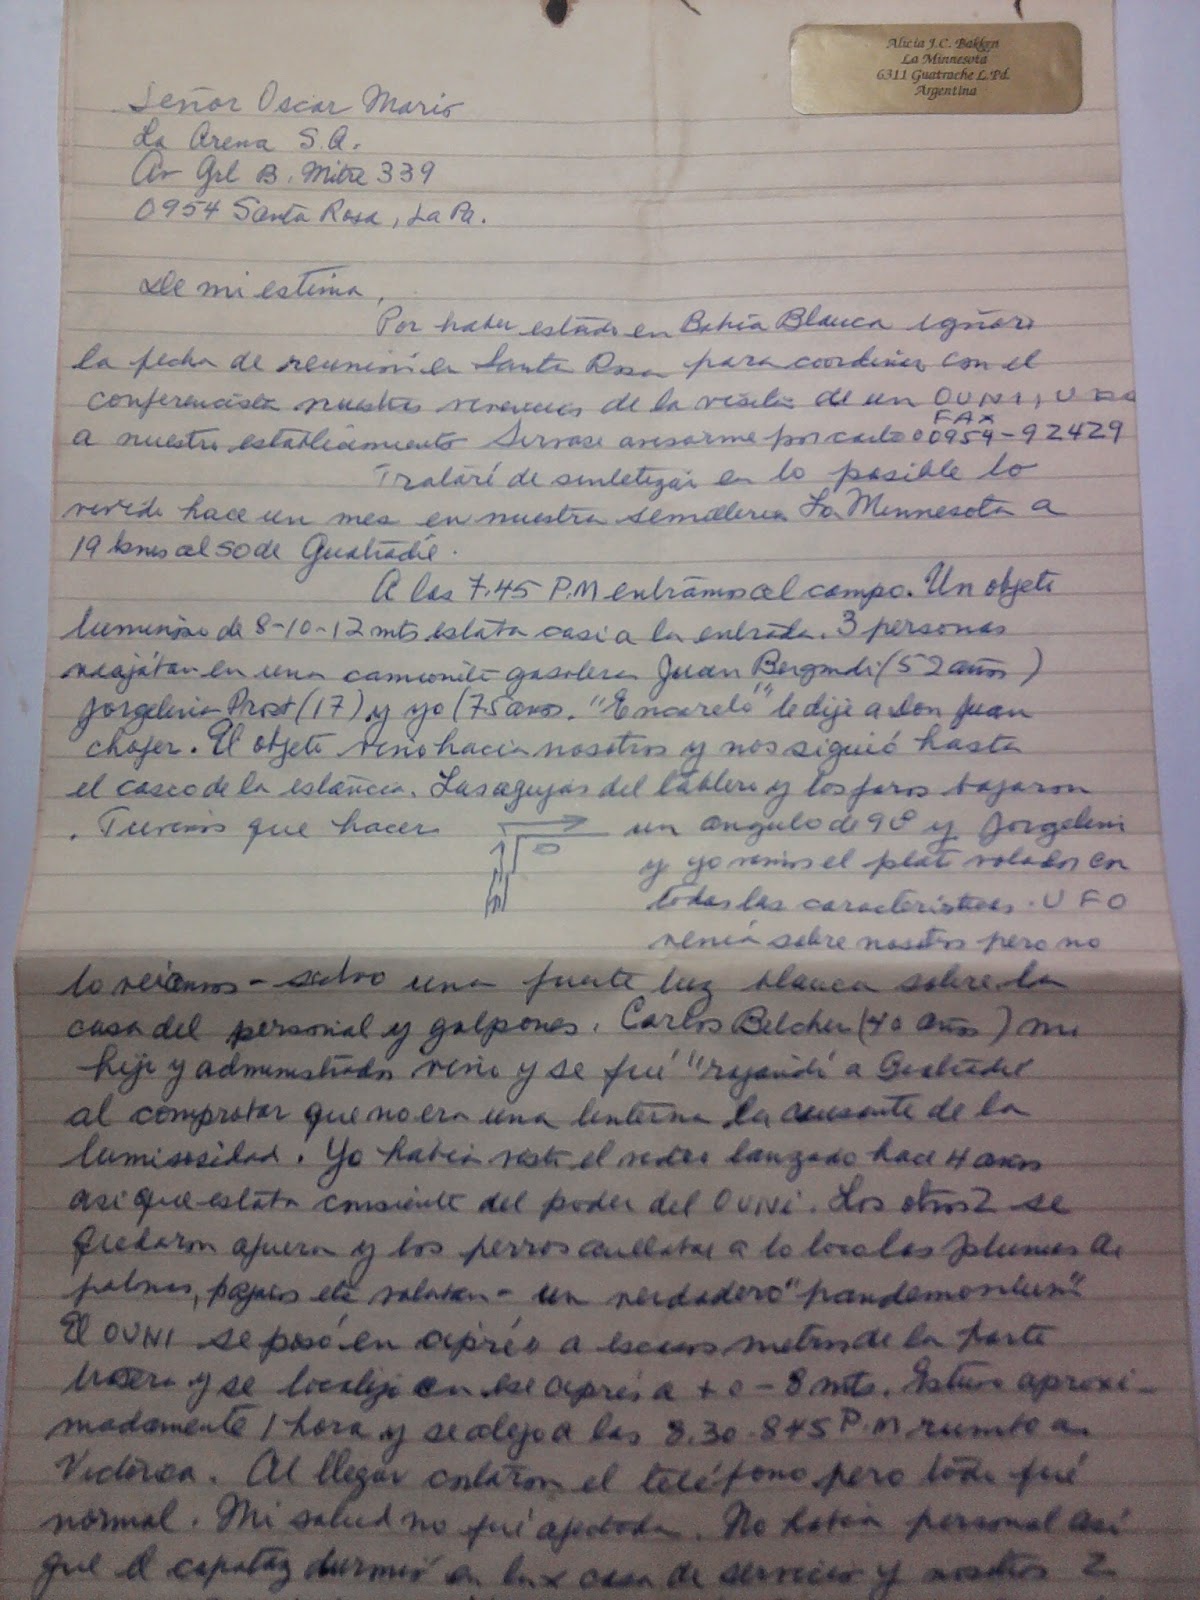 Alicia J.C. Bakken
La Minnesota
6311 Guatrache L.Pd.
Argentina
Señor Oscar Mario
La Arena S.A.
Av Grl B. Mitre 339
0954 Santa Rosa, La Pa.
De mi estima,
Por haber estado en Bahía Blanca ignoro
la fecha de reunión en Santa Rosa para coordinar con el
conferencista nuestras vivencias de la visita de un OVNI, UFO
FAX
a nuestro establecimiento Sirvase avisarme por carta o 0954-92429
Trataré de sintetizar en lo posible lo
vivido hace un mes en nuestra semilleria La Minnesota a
19 kms al SO de Guatraché.
A las 7.45 P.M entramos al campo. Un objeto
luminoso de 8-10-12 mts estaba casi a la entrada. 3 personas
viajaban en una camioneta gasolera Juan (52 años)
Jorgelina Prost (17) y yo (75 años. "Encarelo" le dije a don Juan
chofer. El objeto vino hacia nosotros y nos siguió hasta
el casco de la estancia. Las agujas del tablero y los faros bajaron
. Tuvimos que hacer un angulo de 90 y Jorgelina
y yo vimos el plato volador en
todas las caracteristicas. UFO
venía sobre nosotros pero no
lo veíamos - salvo una fuerte luz blanca sobre la
casa del personal y galpones. Carlos Belcher (40 años) mi
hijo y administrador vino y se fué "rajando" a Guatraché
al comprobar que no era una linterna la causante de la
luminosidad. Yo había visto el video lanzado hace 4 años
asi que estaba consciente del poder del OVNI. Los otros 2 se
quedaron afuera y los perros aullaban a lo loco las plumas de
palmas, pajaros etc volaban - un verdadero "pandemonium"
El OVNI se posó en a escasos metros de la parte
trasera y se localizó en ese a + o - 8 mts. Estuvo aproxi-
madamente 1 hora y se alejo a las 8.30-845 P.M rumbo a
Victorica. Al llegar cortaron el teléfono pero todo fué
normal. Mi salud no fué afectada. No habia personal asi
que el capataz durmió en la casa de servicio y nosotros 2